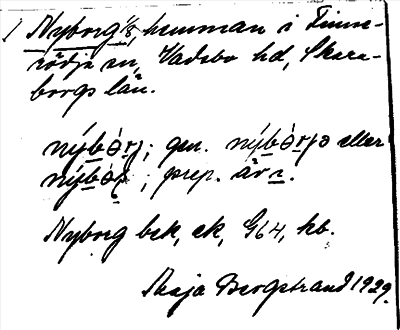 1 Nyborg 1/8, hemman i Finne-
rödja sn, Vadsbo hd, Skara-
borgs län.
nýbòrj; gen. nýbòrjə eller
nýbò ; prep. är ı.
Nyborg bek, ek, G64, hb.
Maja Bergstrand 1929.